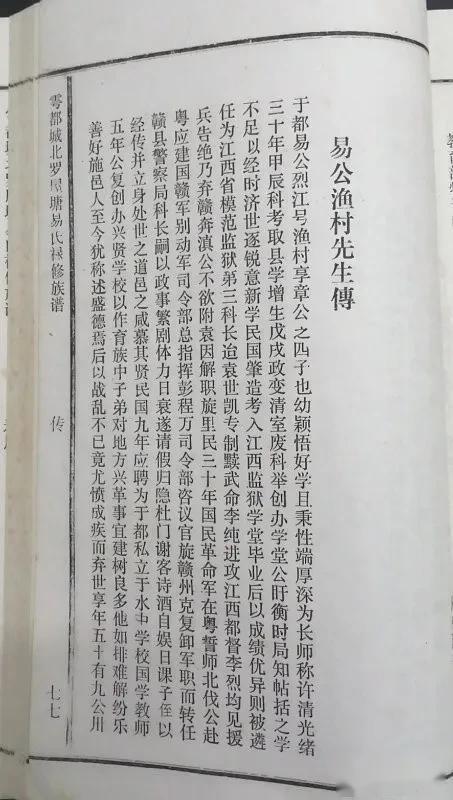 易公渔村先生傳
于都易公烈江号渔村享章公之四子也幼颖悟好学且秉性端厚深为长师称许清光绪
三十年甲辰科考取县学增生戊戌政变清室废科举创办学堂公盱衡时局知帖括之学
不足以经时济世逐锐意新学民国肇造考入江西监狱学堂毕业后以成绩优异则被遴
任为江西省模范监狱第三科长迨袁世凯专制黩武命李纯进攻江西都督李烈均见援
兵告绝乃弃赣奔滇公不欲附袁因解职旋里民三十年国民革命军在粤誓师北伐公赴
粤应建国赣军别动军司令部总指挥彭程万司令部咨议官旋赣州克复卸军职而转任
赣县警察局科长嗣以政事繁剧体力日衰遂请假归隐杜门谢客诗酒自娱日课子侄以
经传并立身处世之道邑之咸慕其贤民国九年应聘为于都私立于水中学校国学教师
五年公复创办兴贤学校以作育族中子弟对地方兴革事宜建树良多他如排难解纷乐
善好施邑人至今犹称述盛德焉后以战乱不已竟尤愤成疾而弃世享年五十有九公川
雩都城北罗屋塘易氏禄修族谱
传
七七